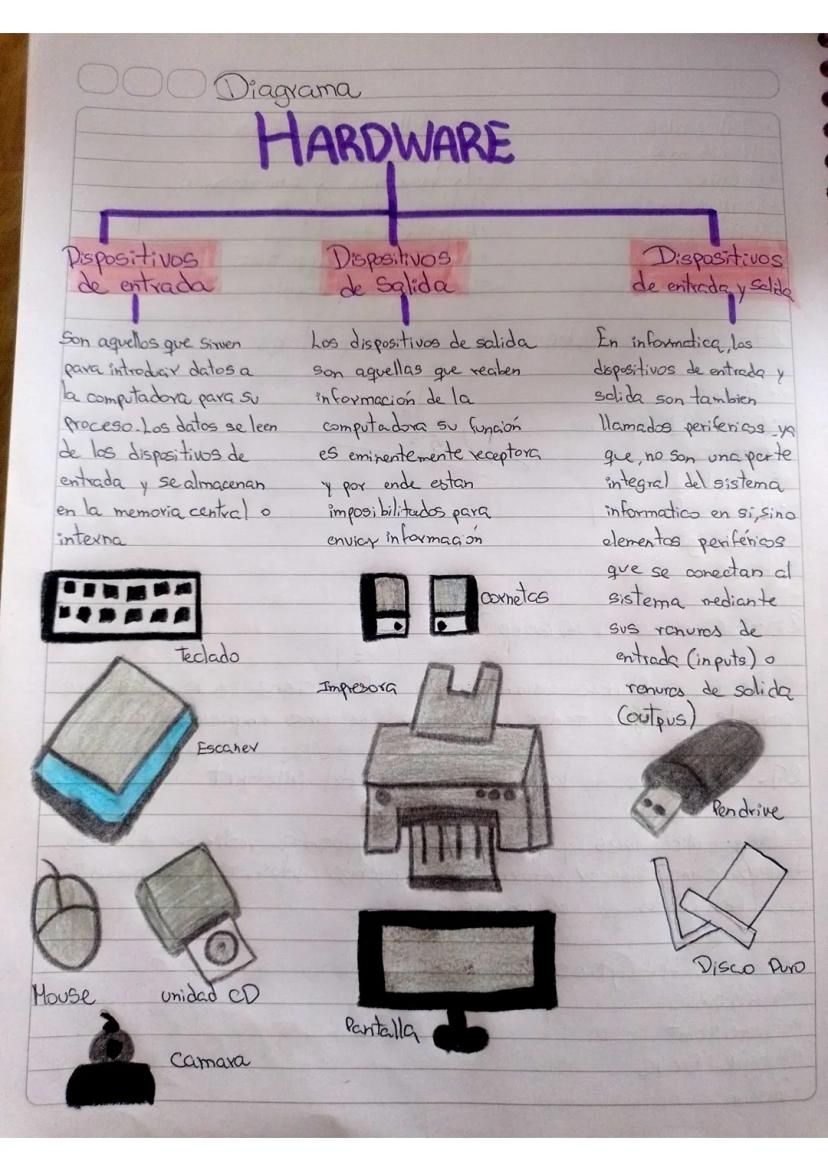 Diagrama
HARDWARE
Dispositivos
de entrada
Son aquellos que sirven
para introducir datos a
la computadora para su
proceso. Los datos se leen
de los dispositivos de
entrada y se almacenan
en la memoria central o
interna
Teclado
Escaner
Mouse
unidad CD
Camara
Dispositivos
de Salida
Los dispositivos de salida
son aquellas que reciben
información de la
computadora su función
es eminentemente receptora
y por ende estan
imposibilitados para
enviar información
cornetas
Impresora
Pantalla
Dispositivos
de entrada y salida
En informatica, los
dispositivos de entrada y
salida son tambien
llamados perifericos ya
que, no son una parte
integral del sistema
informatico en si, sino
elementos periféricos
que se conectan al
sistema mediante
sus ranuras de
entrada (inputs) o
ranuras de salida
(outpus)
Pendrive
Disco Duro